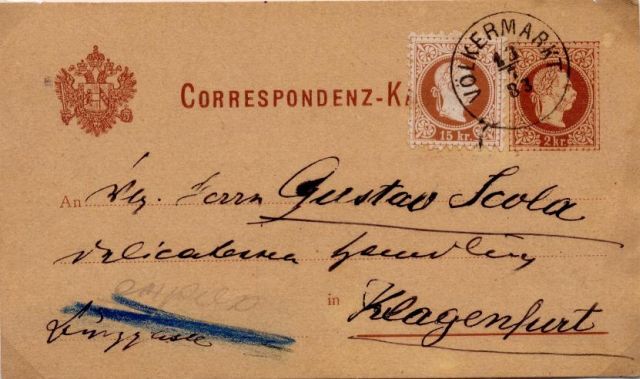 CORRESPONDENZ-K
VÖLKERMARKT
83
15 kr.
2 kr.
An Herrn Gustav Scola
Delicatessen Handlung
in
Klagenfurt